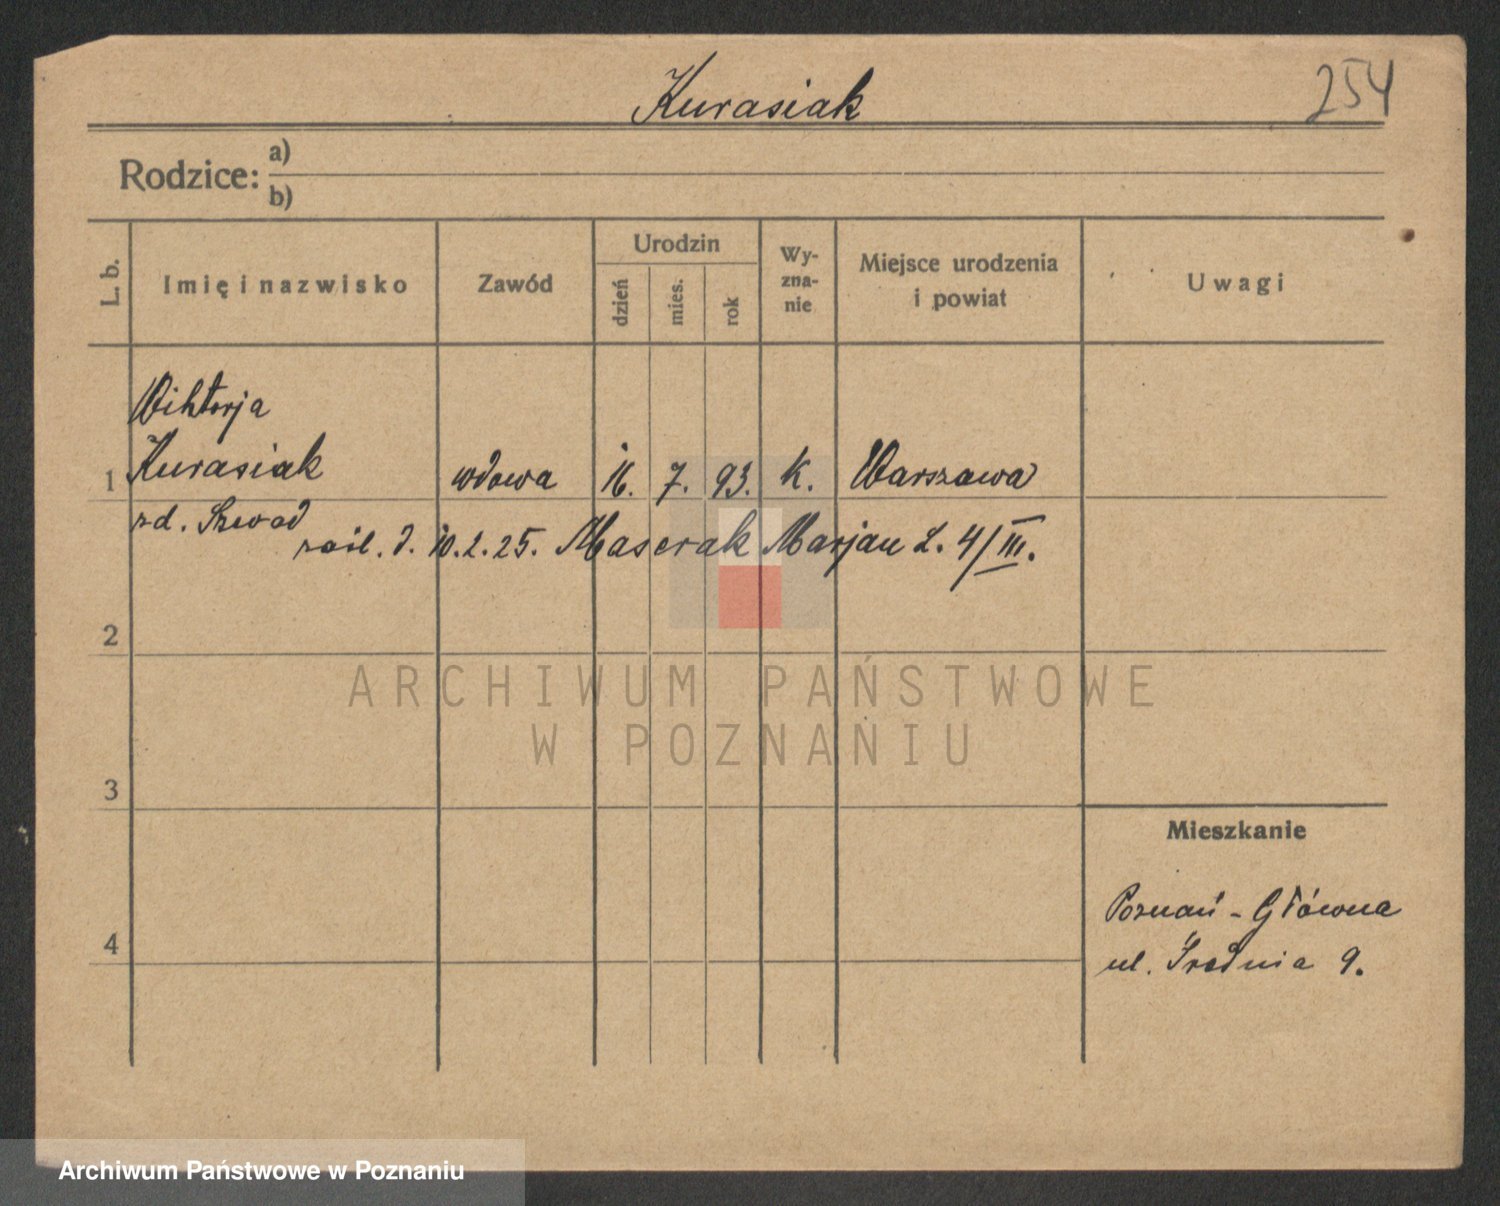 Kurasiak
254
Rodzice: a)
b)
L. b.
Imię i nazwisko
Zawód
Urodzin
dzień
mies.
rok
Wy-
zna-
nie
Miejsce urodzenia
i powiat
Uwagi
Wiktorja
1 Kurasiak wdowa 16. 7. 93. K. Warszawa
10.2.25. Marjan L. 4/III.
2
ARCHIWUM PAŃSTWOWE
W POZNANIU
3
Mieszkanie
Poznań - Główna
4
ul. Średnia 9.
Archiwum Państwowe w Poznaniu